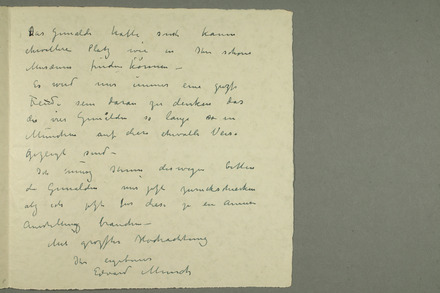 Das Gemälde hatte auch kaum
Platz wie in Ihr schöne
Museum finden können –
Es wird mir immer eine große
Freude sein daran zu denken das
die vier Gemälden so lange
München auf diese Weise
gezeigt sind –
Ich Ihnen deswegen bitten
die Gemälden mir jetzt zurückschicken
als ich jetzt für diese zu en
Ausstellung brauche –
Mit größter Hochachtung
Ihr ergebener
Edvard Munch